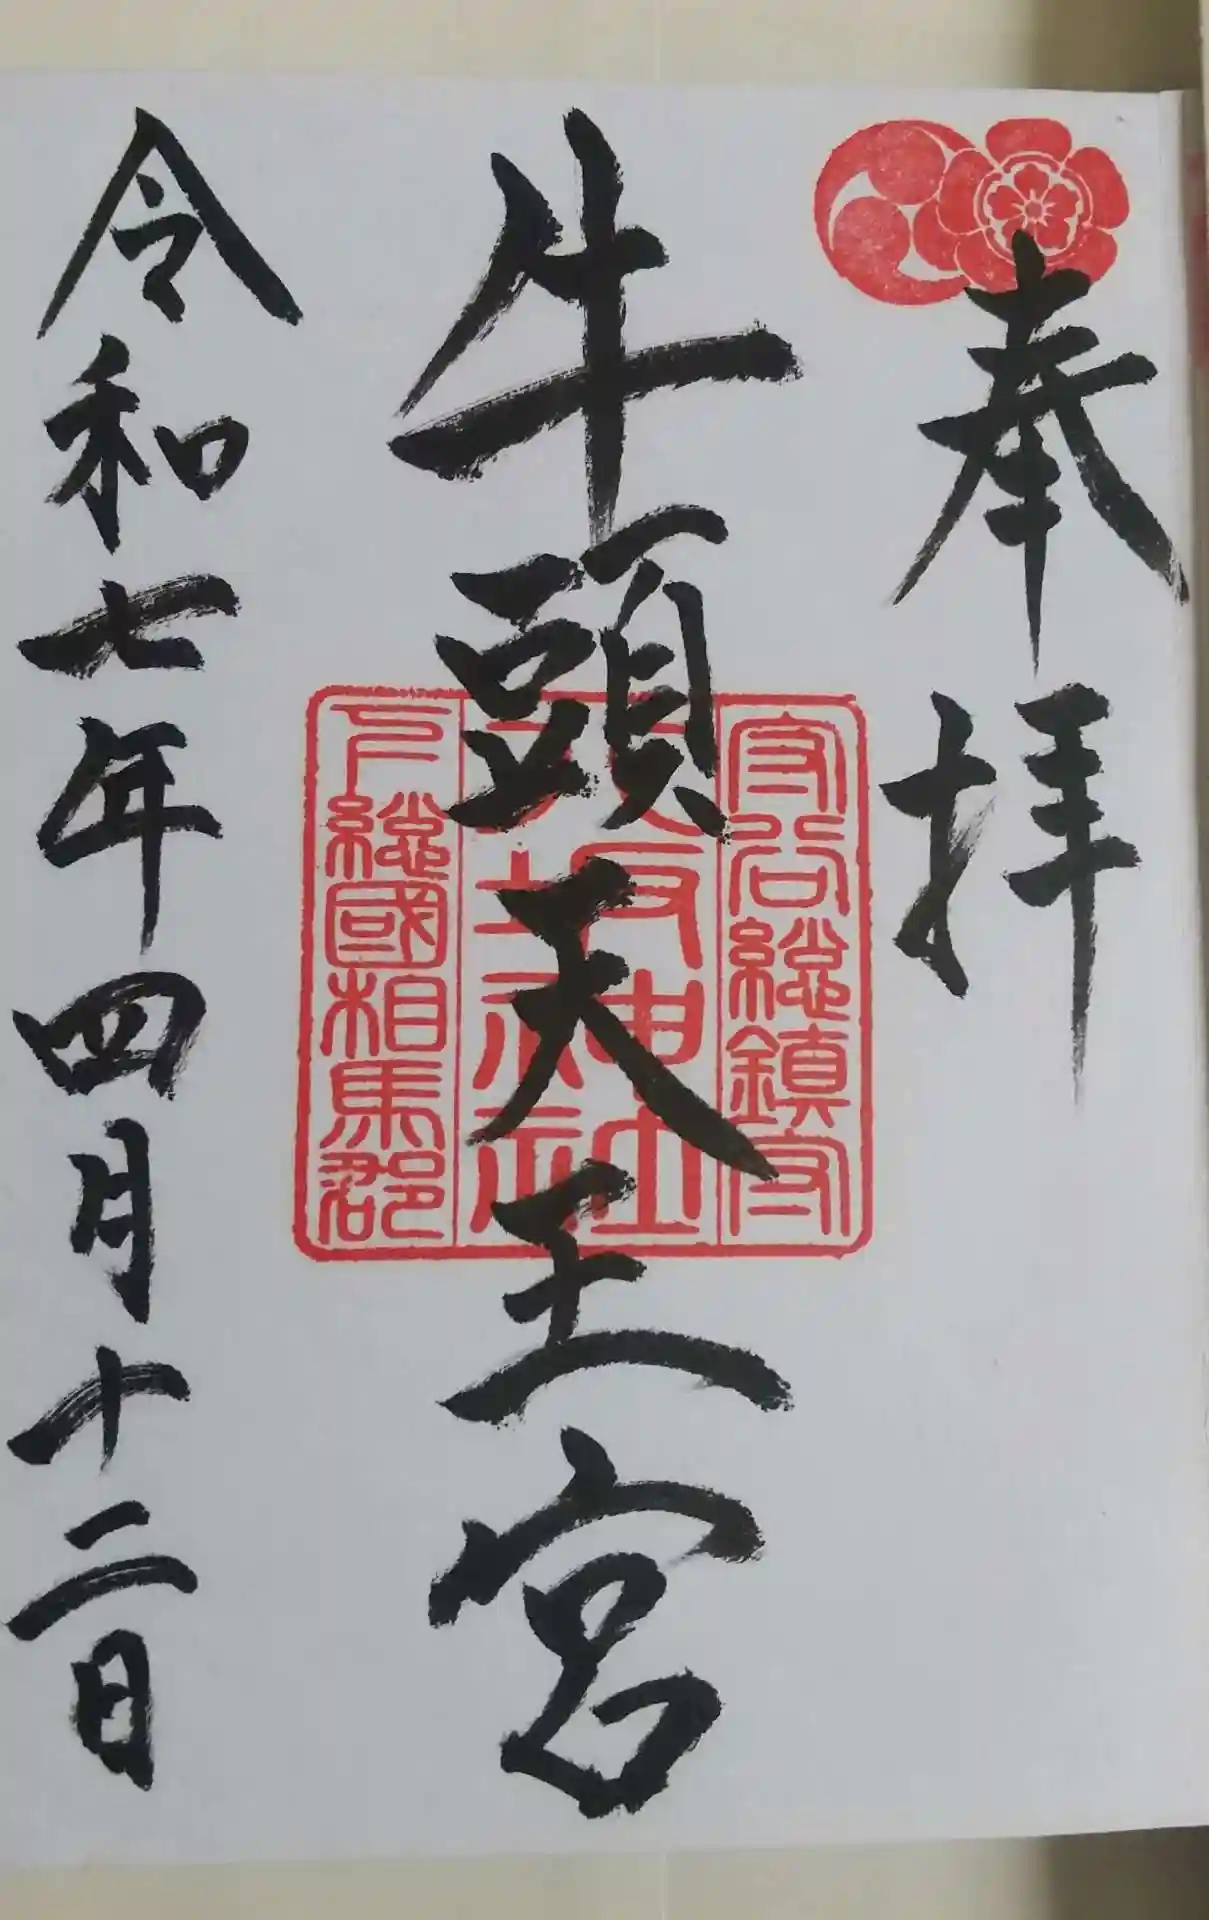 奉拝
牛頭天王宮
令和七年四月十二日
守谷総鎮守
八坂神社
下総國相馬郡